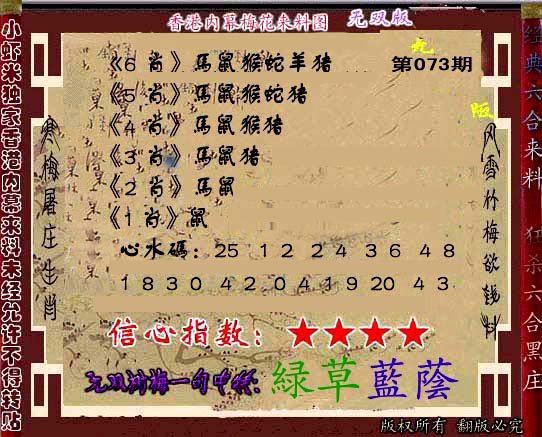 香港内幕梅花来料图 无双版
九
《6 肖》馬鼠猴蛇羊猪 第073期
《5 肖》馬鼠猴蛇猪
阪
《4 肖》馬鼠猴猪
《3 肖》馬鼠猪
《2 肖》馬鼠
《1 肖》鼠
心水碼：25 12 24 36 48
18 30 42 04 19 20 43
信心指数：★★★★
无双湖梅一句中特：綠草藍蔭
版权所有 翻版必究
小虾米独家香港内幕来料未经允许不得转贴
寒梅屠庄生肖
风雪竹梅欲钱料
经典六合来料 狂杀六合黑庄